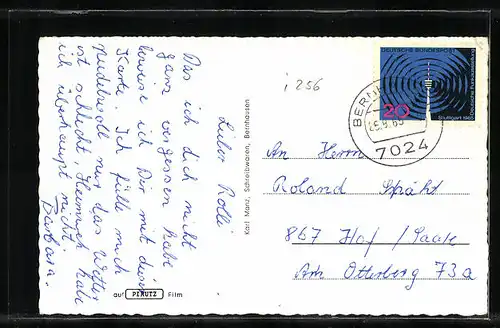 Lieber Rolli
Das ich dich nicht
ganz vergessen habe
beweise ich Dir mit dieser
Karte. Ich fühle mich
pudelwoll nur das Wetter
ist schlecht, Heimweh habe
ich überhaupt nicht.
Barbara.
auf PERUTZ Film
Karl Manz, Schreibwaren, Bernhausen
i 256
DEUTSCHE BUNDESPOST
20
Deutsche Funkausstellung
Stuttgart 1965
7024
An Herrn
Roland Spähr
867 Hof / Saale
Am Otterberg 73a